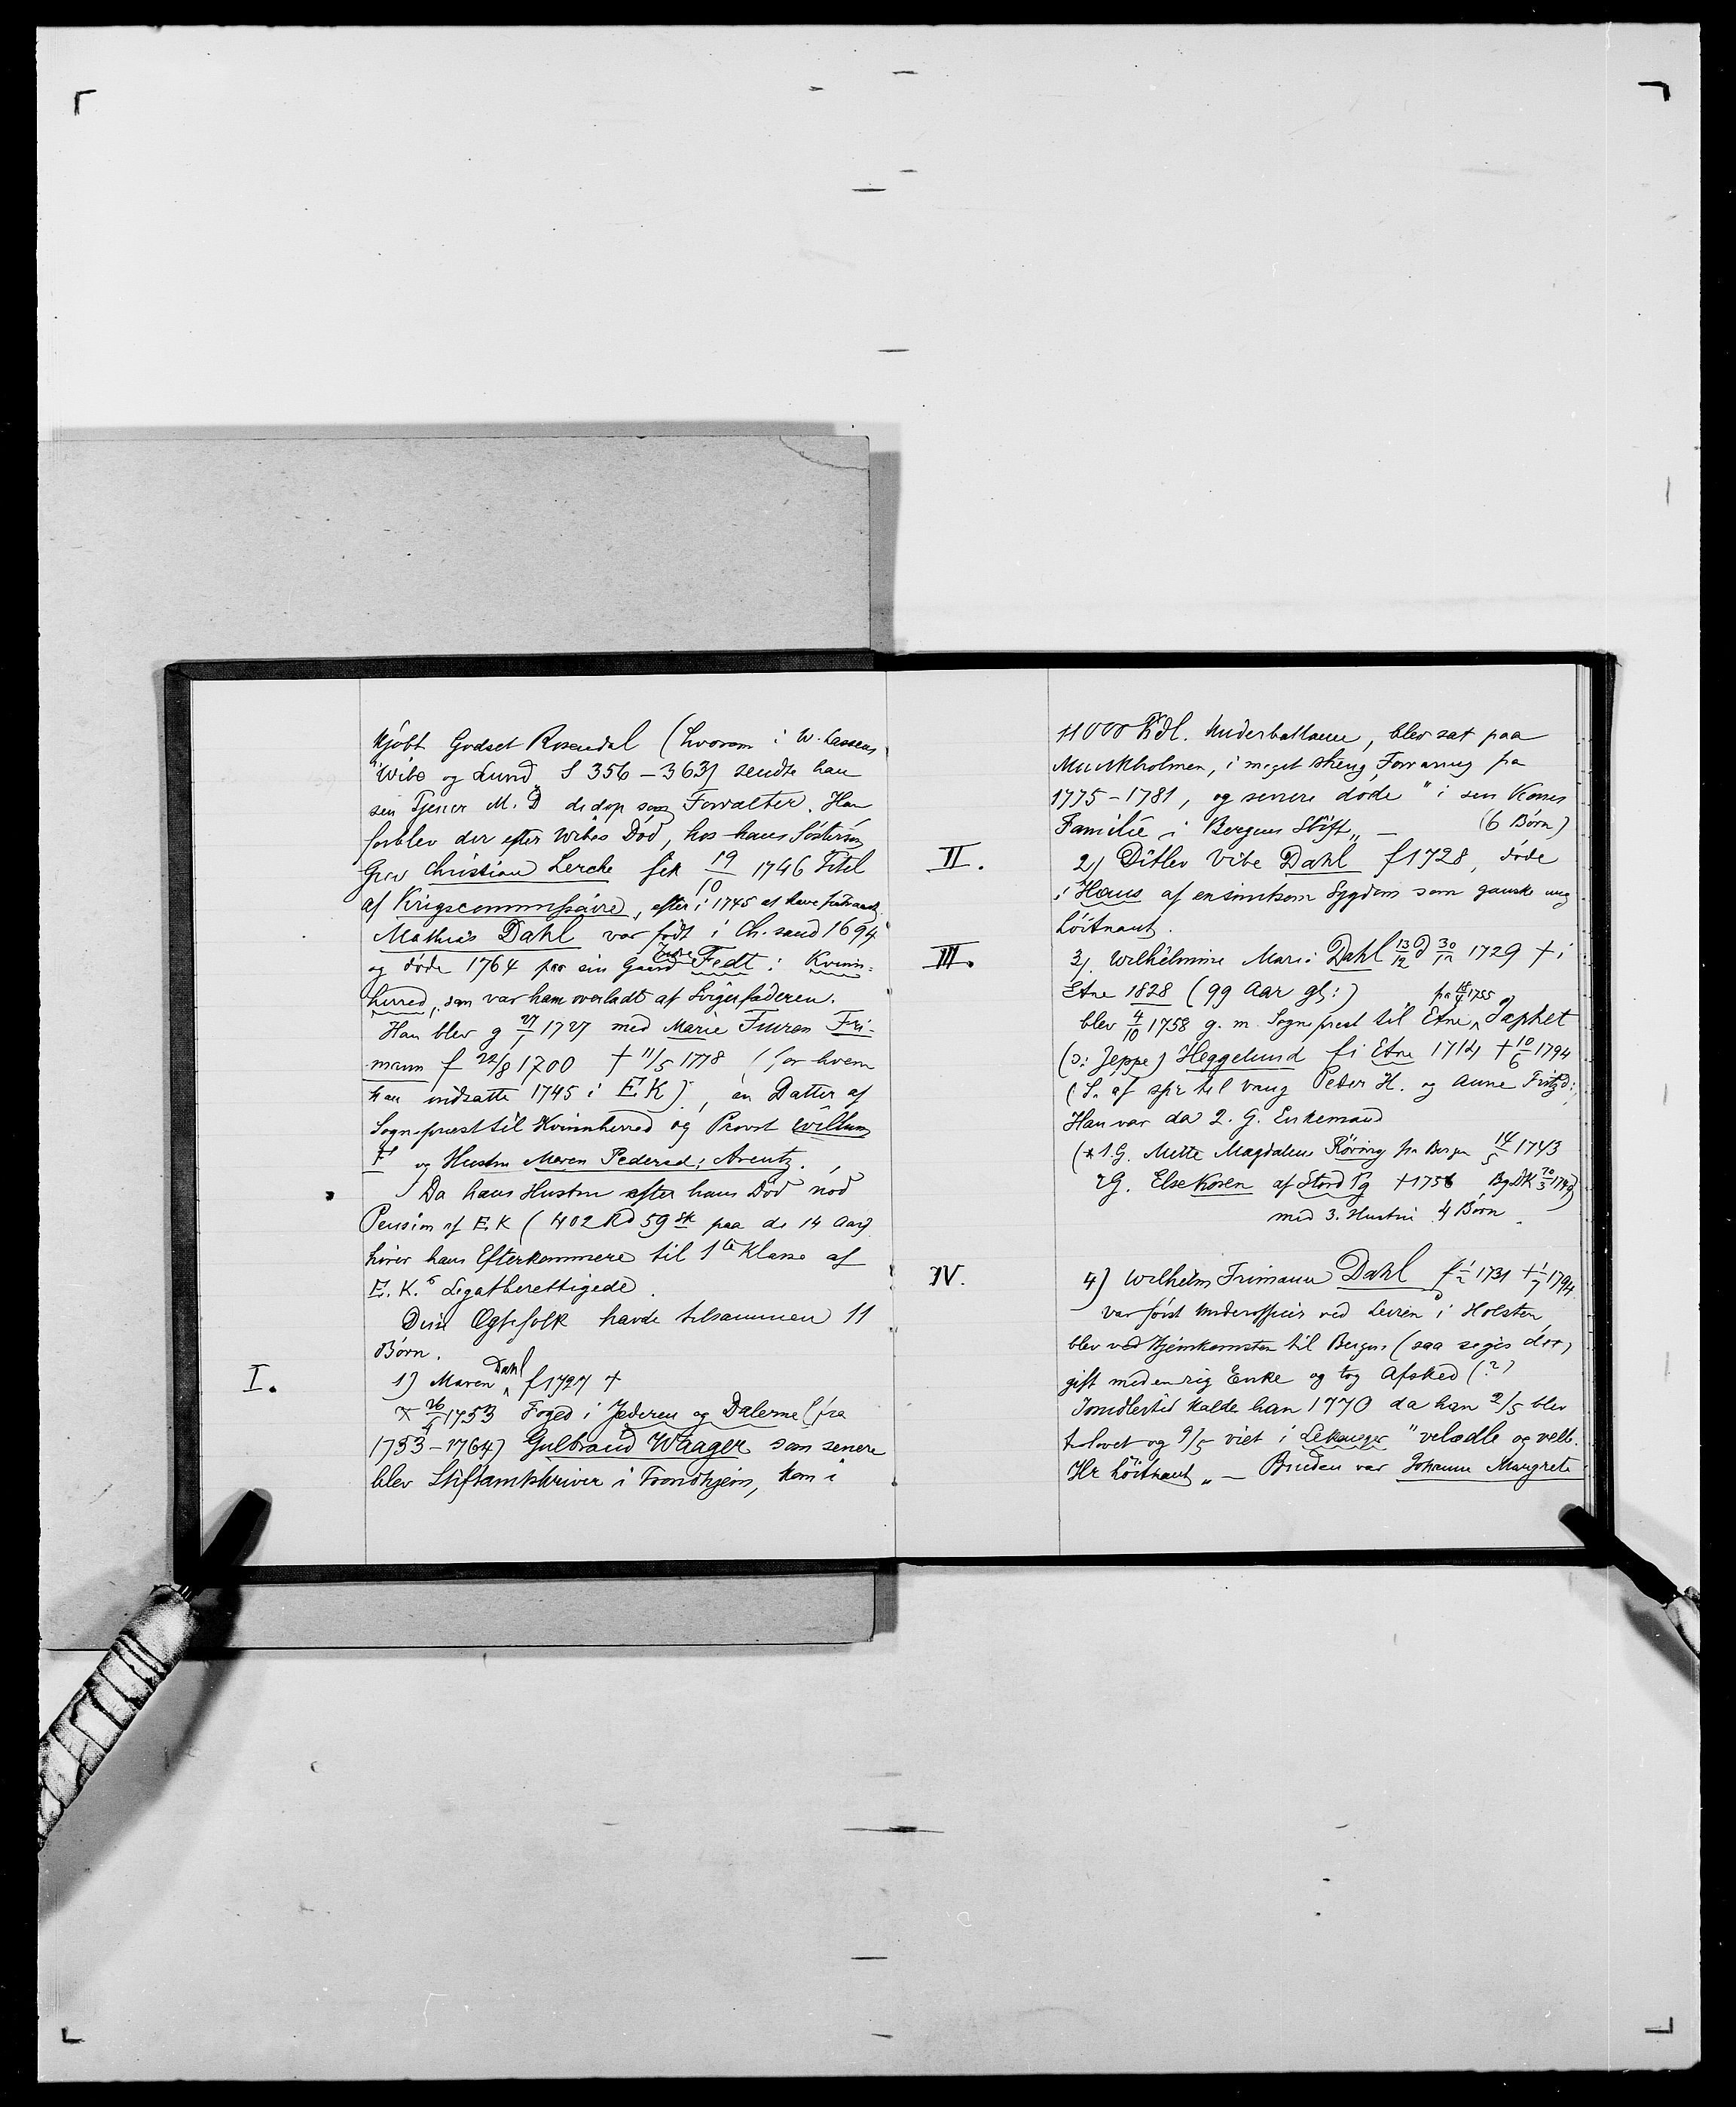 kjøbt Godset Rosendal (hvorom i W. Lassens
"Wibe og Lund" S 356 – 363) sendte han
sin Tjener M. D derop som Forvalter. Han
forblev der efter Wibes Død, hos hans Søstersøn
Grev Christian Lerche fik 19/10 1746 Titel
af Krigscommissaire, efter i 1745 at have
Mathias Dahl var født i Ch.sand 1694
og døde 1764 paa sin Gaard Indre Fedt i Kvinn-
herred, som var ham overladt af Svigerfaderen.
Han blev g 27/1 1727 med Marie Furen Fri-
mann f 22/8 1700 † 11/5 1778 (for hvem
han indsatte 1745 i E K), en Datter af
Sogneprest til Kvinnherred og Provst Willum
F og Hustru Maren Pedersd: Arentz.
Da hans Hustru efter hans Død nød
Pension af E. K (402 Rd 59 sk paa de 14 Aar)
hører hans Efterkommere til 1ste Klasse af
E. K.s Legatberettigede.
Disse Ægtefolk havde tilsammen 11
Børn.
I.
1) Maren Dahl f 1727 †
× 26/4 1753 Foged i Jæderen og Dalerne (fra
1753 – 1764) Gulbrand Waager som senere
blev Stiftamtskriver i Trondhjem, kom i
11000 Rdl. Underballance, blev sat paa
Munkholmen, i meget streng Forvaring fra
1775 – 1781, og senere døde "i sin Kones
Familie i Bergens Stift" – (6 Børn)
II.
2) Ditlev Vibe Dahl f 1728, døde
i Haus af en sindsom Sygdom som ganske ung
Løitnant.
III.
3) Wilhelmine Marie Dahl 13/12 d 30/12 1729 † i
Etne 1828 (99 Aar gl:)
blev 4/10 1758 g. m. Sogneprest til Etne fra 18/4 1755 Japhet
(ɔ: Jeppe) Heggelund f i Etne 1714 † 10/6 1794
(S. af spr til Vang Peder H. og Anne Fritzd:
Han var da 2. G. Enkemand
(* 1. G. Mette Magdalene Røring fra Bergen 14/5 1743
2 G. Else Koren af Stord Pg † 1756 Bg. DK
med 3. Hustru 4 Børn
IV.
4) Wilhelm Frimann Dahl f 1/2 1731 † 1/7 1794.
var først Underofficer ved Leiren i Holsten,
blev ved Hjemkomsten til Bergen (saa siges der)
gift med en rig Enke og tog Afsked (?)
Imidlertid kaldes han 1770 da han 2/5 blev
trolovet og 9/5 viet i Lekanger "velædle og velb.
Hr Løitnant" – Bruden var Johanne Margrete